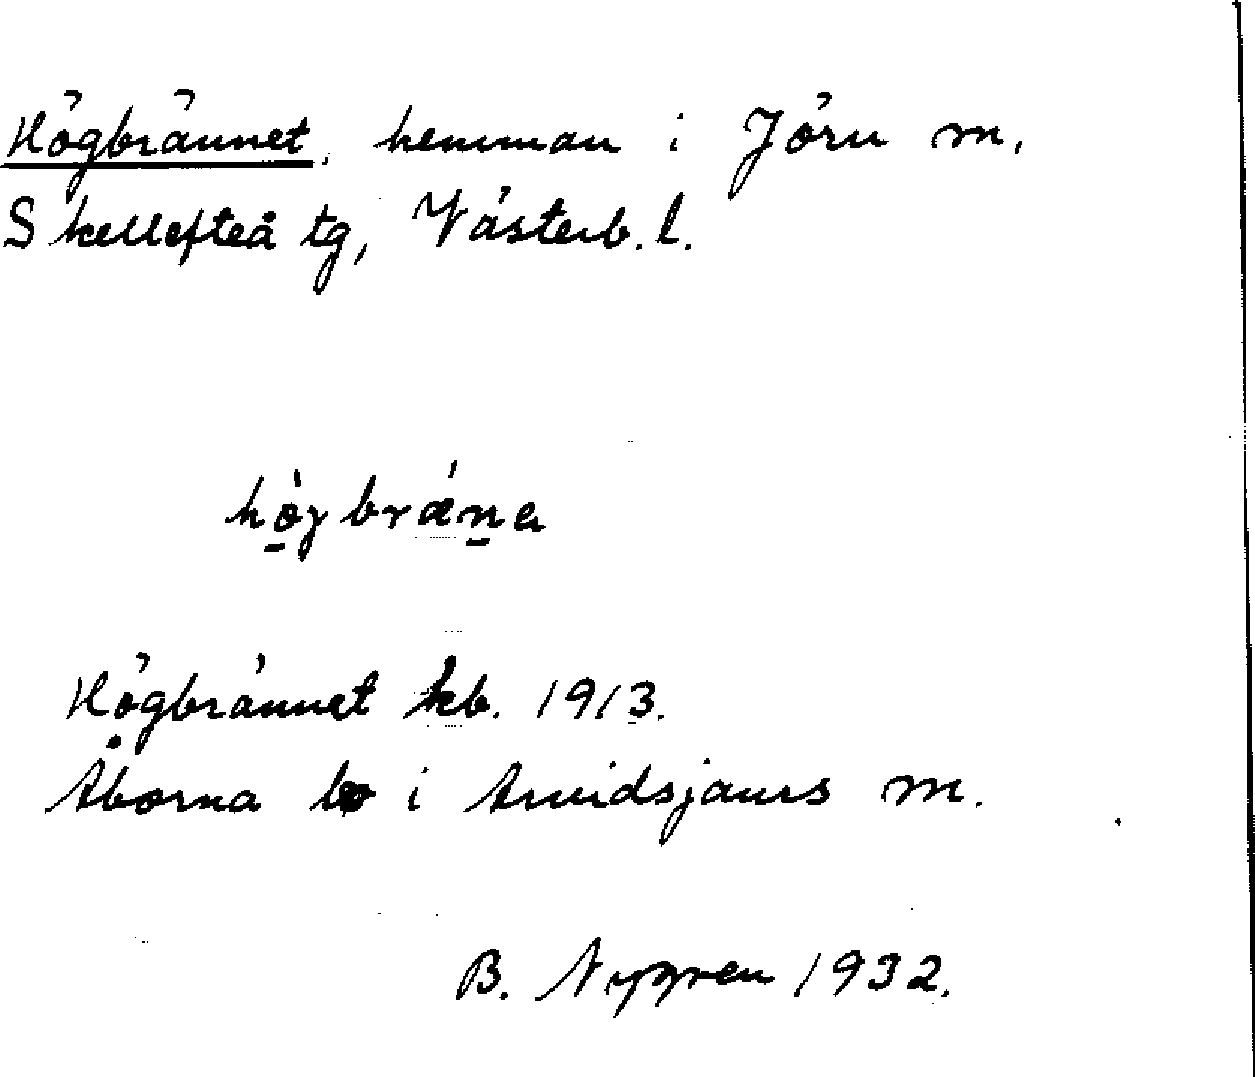 Högbrännet, hemman i Jörn m,
Skellefteå tg, Västerb. l.
hö̀gbræ̀na
Högbrännet kb. 1913.
Åborna bo i Arvidsjaurs m.
B. Nygren 1932.